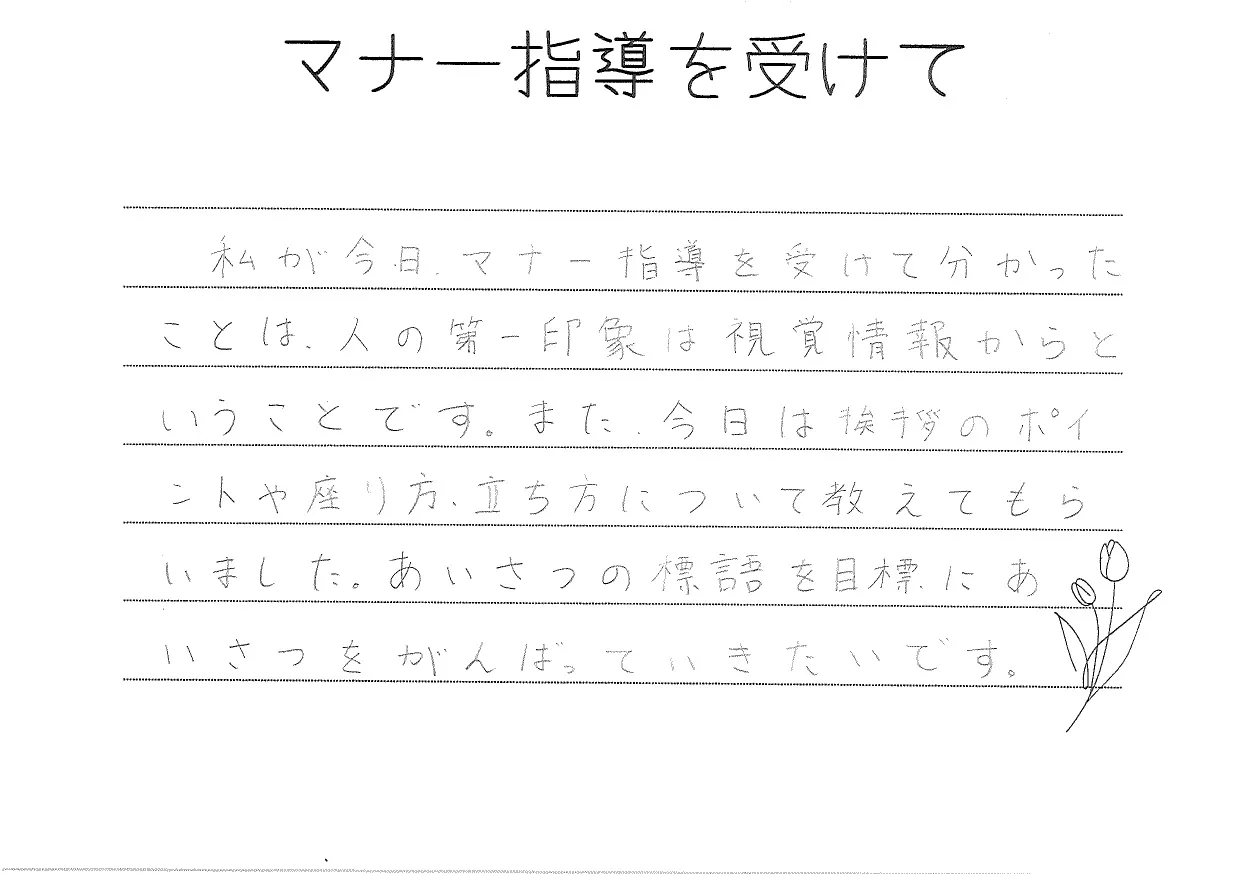 マナー指導を受けて
私が今日、マナー指導を受けて分かった
ことは、人の第一印象は視覚情報からと
いうことです。また、今日は挨拶のポイ
ントや座り方、立ち方について教えてもら
いました。あいさつの標語を目標にあ
いさつをがんばっていきたいです。